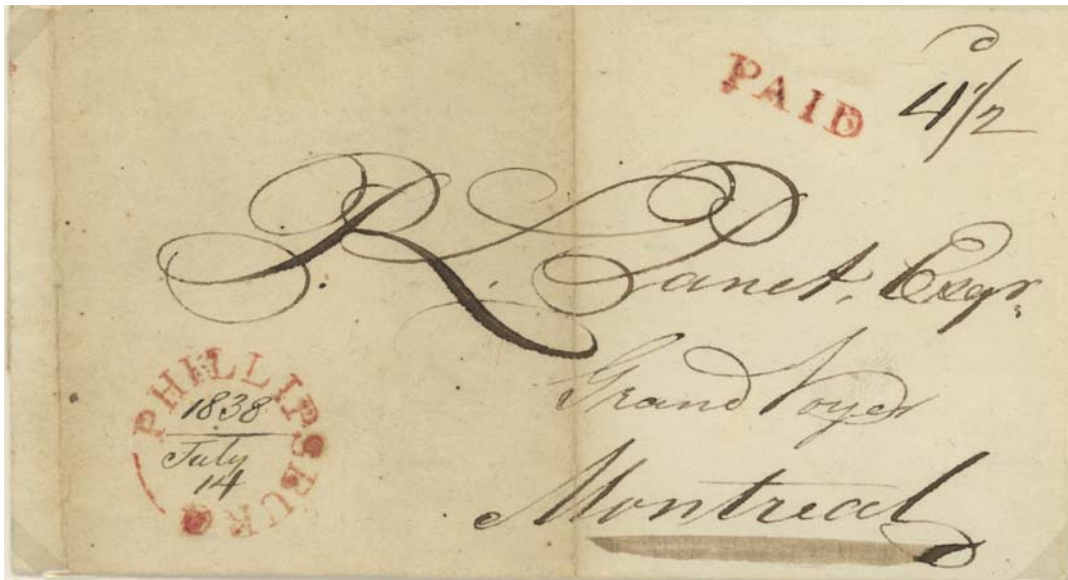 PAID
4 1/2
R. Panet, Esqr.
Grand Voyer
Montreal
PHILLIPSBURG
1838
July
14